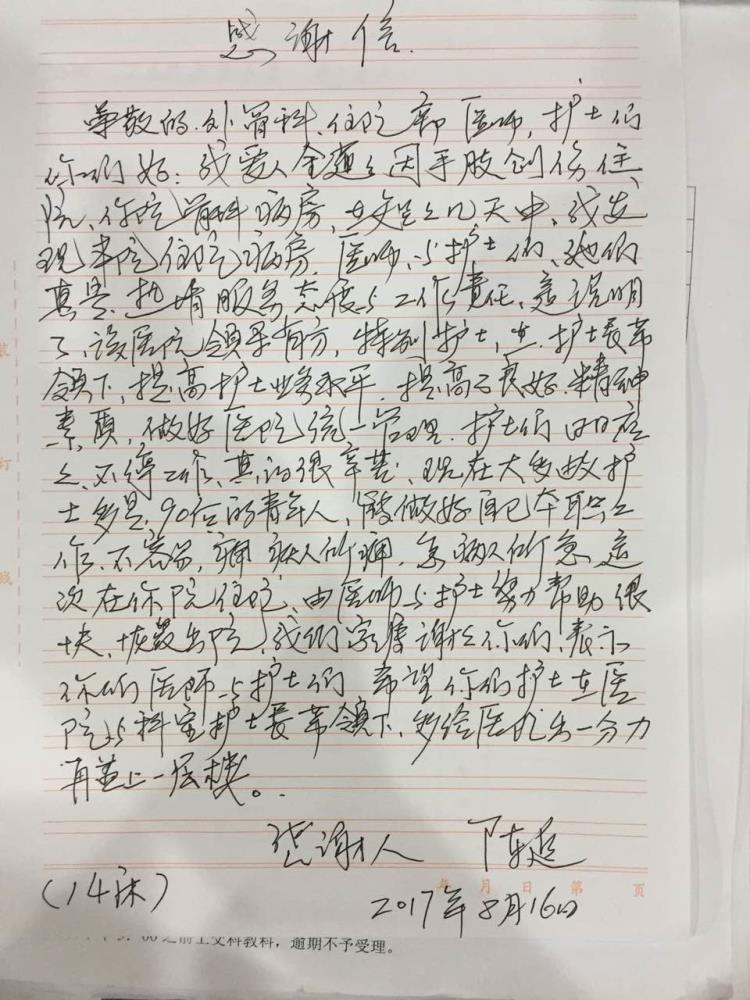 感谢信.
尊敬的.外骨科、住院部医师,护士们
你们好:我爱人金 因手肢创伤住
院、你院骨科病房,在 几天中、我发
现本院住院病房.医师、与护士们、她们
真是.热情服务态度与工作责任、这说明
了、该医院领导有方,特别护士,在.护士长带
领下、提高护士业务水平.提高了良好.精神
素质,做好医院统一管理.护士们日日夜
不停工作、真的很辛苦、现在大多数护
士多是.90后的青年人,能做好自己本职工
作、不容易,痛病人所痛,急病人所急,这
次在你院住院、由医师与护士努力帮助很
快、恢复出院,我们家属谢谢你们、表示
你们医师与护士们 希望你们护士在医
院与科室护士长带领下、 给医 出一分力
再盖上一层楼。
感谢人 陈
(14床)
年 月 日 第 页
2017年8月16日
之前上交科教科,逾期不予受理。
装
订
线